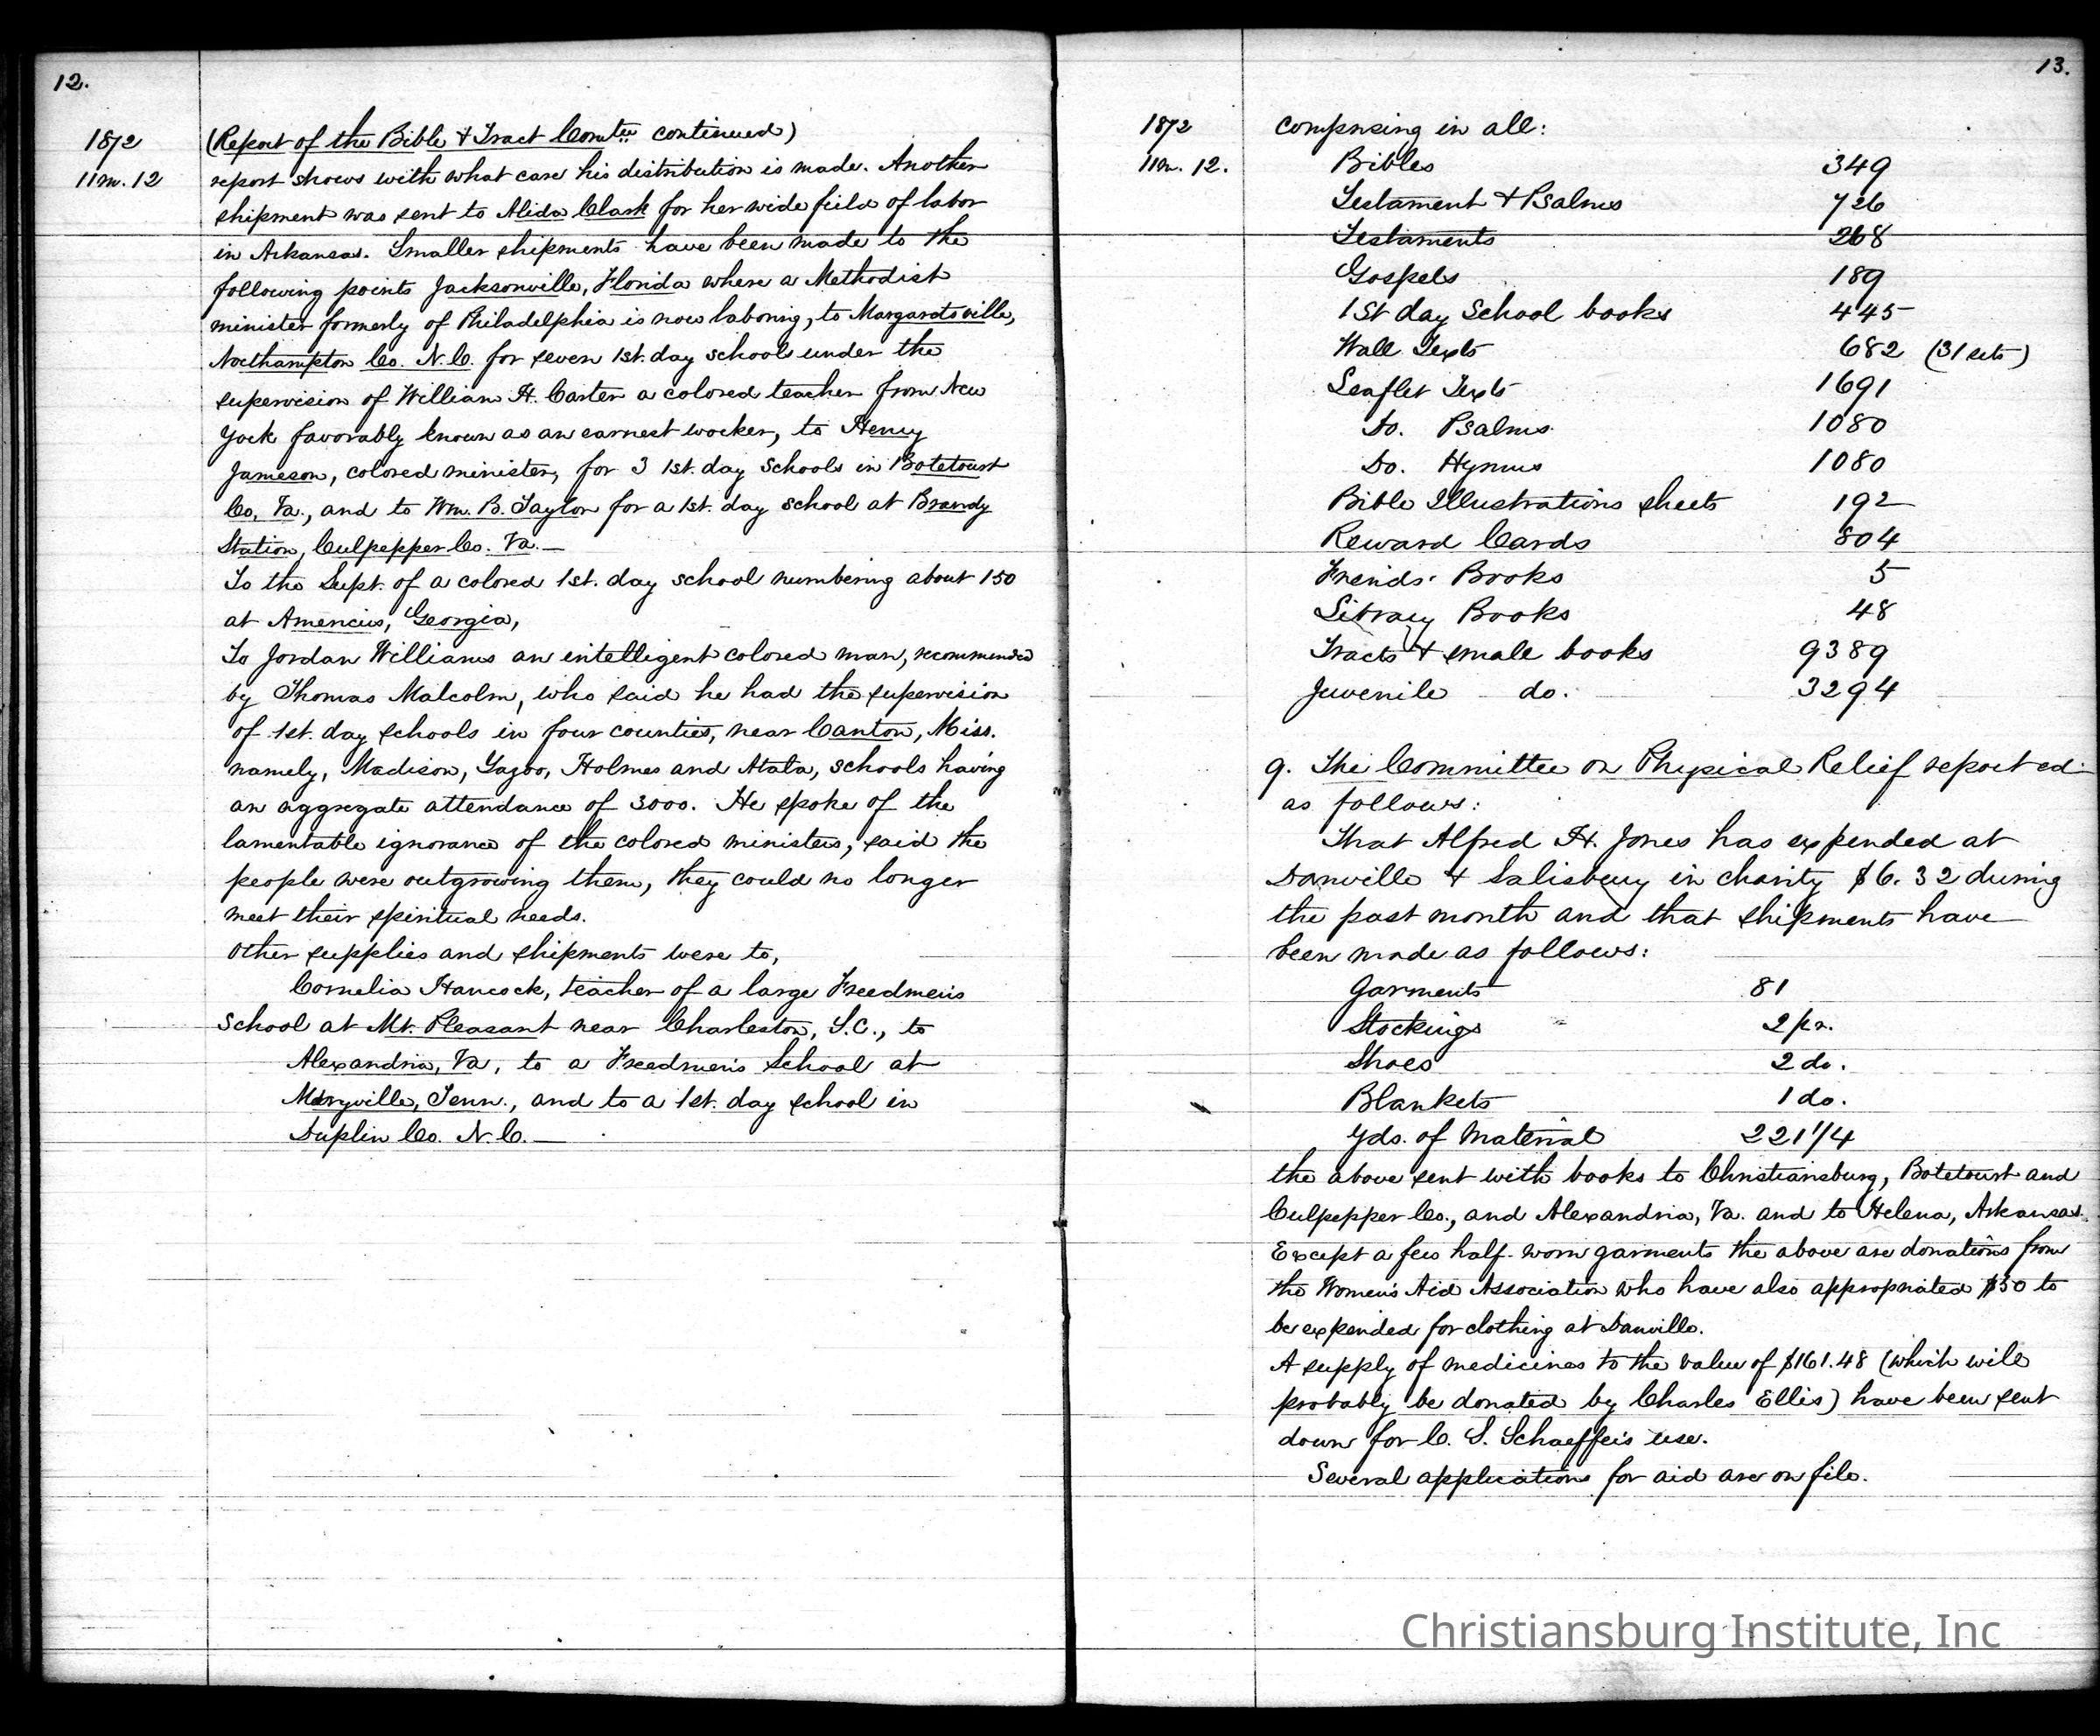 12.
1872
11m. 12
(Report of the Bible & Tract Comtee continued)
report shows with what care his distribution is made. Another
shipment was sent to Alida Clark for her wide field of labor
in Arkansas. Smaller shipments have been made to the
following points Jacksonville, Florida where a Methodist
minister formerly of Philadelphia is now laboring, to Margarettsville,
Northampton Co. N.C. for seven 1st. day schools under the
supervision of William H. Carter a colored teacher from New
York favorably known as an earnest worker, to Henry
Jameson, colored minister, for 3 1st. day schools in Botetourt
Co. Va., and to Wm. B. Taylor for a 1st. day school at Brandy
Station, Culpepper Co. Va.—
To the Supt. of a colored 1st. day school numbering about 150
at Americus, Georgia,
To Jordan Williams an intelligent colored man, recommended
by Thomas Malcolm, who said he had the supervision
of 1st. day schools in four counties, near Canton, Miss.
namely, Madison, Yazoo, Holmes and Atala, schools having
an aggregate attendance of 3000. He spoke of the
lamentable ignorance of the colored ministers, said the
people were outgrowing them, they could no longer
meet their spiritual needs.
Other supplies and shipments were to,
Cornelia Hancock, teacher of a large Freedmen's
School at Mt. Pleasant near Charleston, S.C., to
Alexandria, Va, to a Freedmen's School at
Maryville, Tenn., and to a 1st. day school in
Duplin Co. N.C.—
13.
1872
11m. 12.
comprising in all:
Bibles 349
Testament & Psalms 726
Testaments 268
Gospels 189
1st day School books 445
Wall Texts 682 (31 sets)
Leaflet Texts 1691
Do. Psalms 1080
Do. Hymns 1080
Bible Illustrations sheets 192
Reward Cards 804
Friends' Books 5
Library Books 48
Tracts & small books 9389
Juvenile do. 3294
9. The Committee on Physical Relief reported
as follows:
That Alfred H. Jones has expended at
Danville & Salisbury in charity $6.32 during
the past month and that shipments have
been made as follows:
Garments 81
Stockings 2 pr.
Shoes 2 do.
Blankets 1 do.
Yds. of Material 221 1/4
the above sent with books to Christiansburg, Botetourt and
Culpepper Co., and Alexandria, Va. and to Helena, Arkansas.
Except a few half-worn garments the above are donations from
the Women's Aid Association who have also appropriated $50 to
be expended for clothing at Danville.
A supply of medicines to the value of $161.48 (which will
probably be donated by Charles Ellis) have been sent
down for C. S. Schaeffer's use.
Several applications for aid are on file.
Christiansburg Institute, Inc